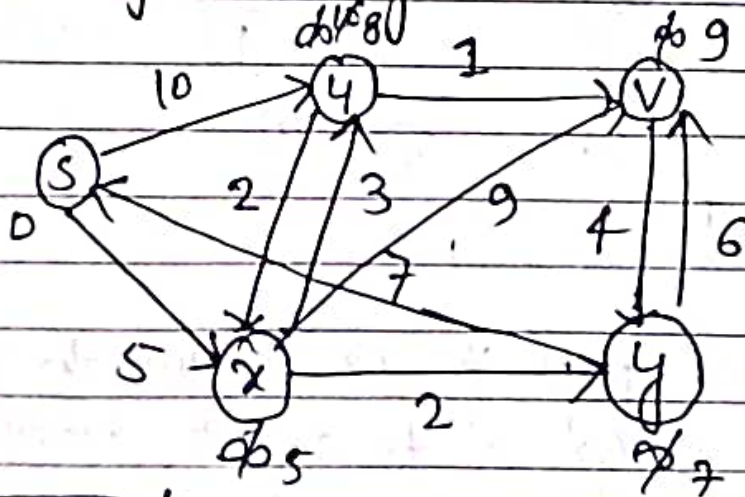 ∞ 10 8
∞ 9
1
10
u
v
s
0
2
3
9
4
6
7
5
x
2
y
∞ 5
∞ 7